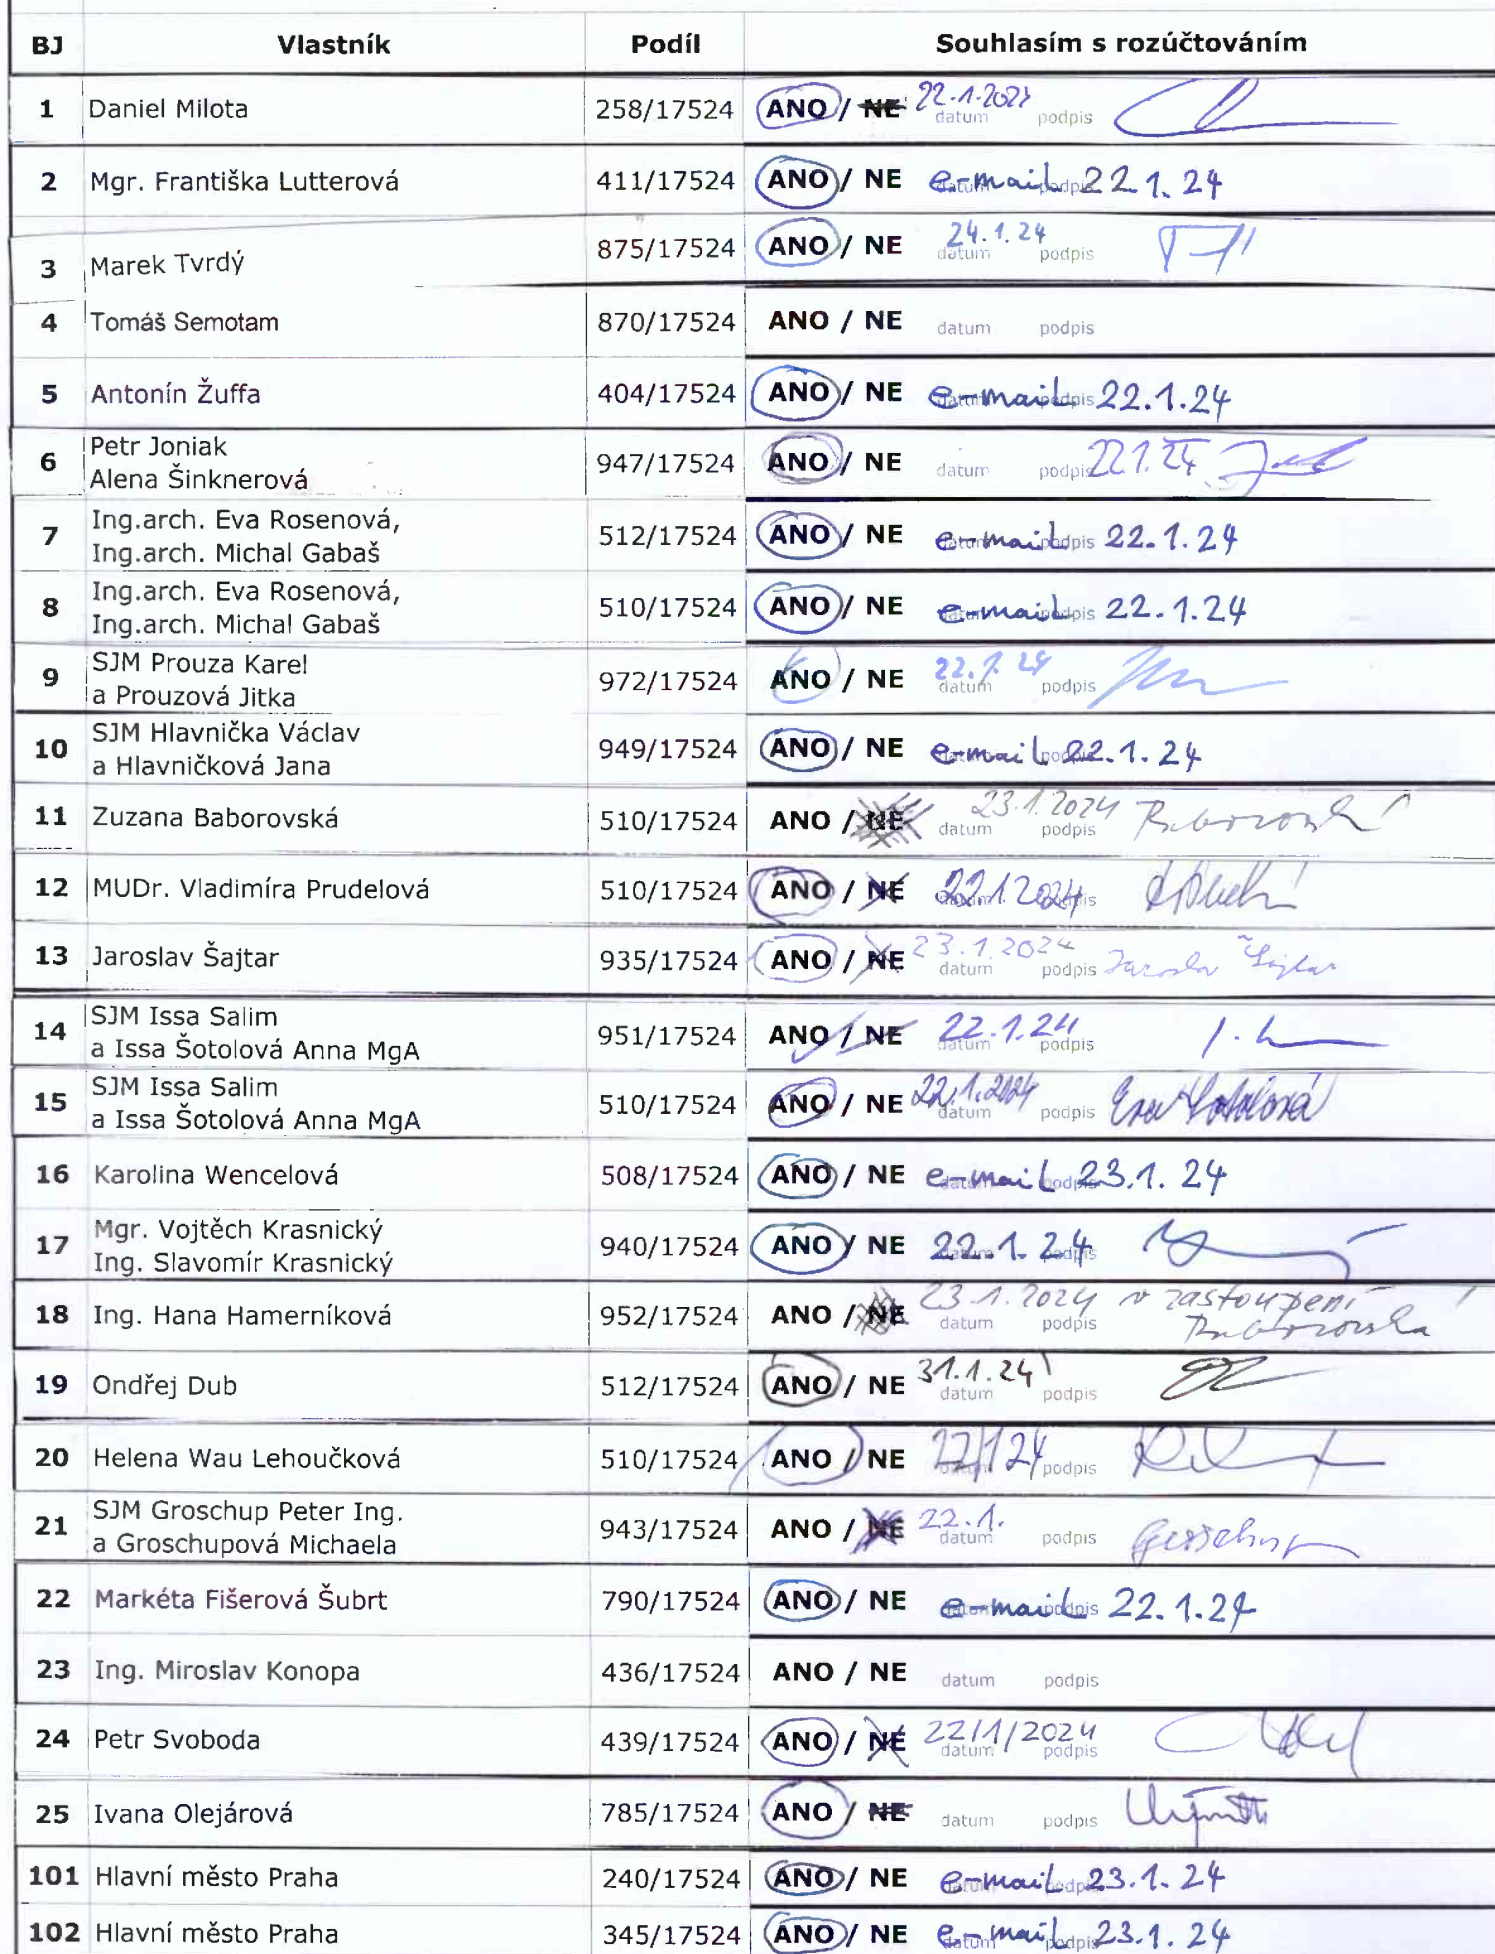 BJ Vlastník Podíl Souhlasím s rozúčtováním
1 Daniel Milota 258/17524 ANO / NE 22.1.2024 datum podpis
2 Mgr. Františka Lutterová 411/17524 ANO / NE datum podpis e-mail 22.1.24
3 Marek Tvrdý 875/17524 ANO / NE 24.1.24 datum podpis
4 Tomáš Semotam 870/17524 ANO / NE datum podpis
5 Antonín Žuffa 404/17524 ANO / NE datum podpis e-mail 22.1.24
6 Petr Joniak
Alena Šinknerová 947/17524 ANO / NE datum podpis 22 1. 24
7 Ing.arch. Eva Rosenová,
Ing.arch. Michal Gabaš 512/17524 ANO / NE datum podpis e-mail 22.1.24
8 Ing.arch. Eva Rosenová,
Ing.arch. Michal Gabaš 510/17524 ANO / NE datum podpis e-mail 22.1.24
9 SJM Prouza Karel
a Prouzová Jitka 972/17524 ANO / NE 22.1.24 datum podpis
10 SJM Hlavnička Václav
a Hlavničková Jana 949/17524 ANO / NE datum podpis e-mail 22.1.24
11 Zuzana Baborovská 510/17524 ANO / NE 23.1.2024 datum podpis Baborovská
12 MUDr. Vladimíra Prudelová 510/17524 ANO / NE 22.1.2024 datum podpis
13 Jaroslav Šajtar 935/17524 ANO / NE 23.1.2024 datum podpis Jaroslav Šajtar
14 SJM Issa Salim
a Issa Šotolová Anna MgA 951/17524 ANO / NE 22.1.24 datum podpis
15 SJM Issa Salim
a Issa Šotolová Anna MgA 510/17524 ANO / NE 22.1.2024 datum podpis Eva Šotolová
16 Karolina Wencelová 508/17524 ANO / NE datum podpis e-mail 23.1.24
17 Mgr. Vojtěch Krasnický
Ing. Slavomír Krasnický 940/17524 ANO / NE datum podpis 22.1.24
18 Ing. Hana Hamerníková 952/17524 ANO / NE 23.1.2024 v zastoupení datum podpis
Baborovská
19 Ondřej Dub 512/17524 ANO / NE 31.1.24 datum podpis
20 Helena Wau Lehoučková 510/17524 ANO / NE datum podpis
21 SJM Groschup Peter Ing.
a Groschupová Michaela 943/17524 ANO / NE 22.1. datum podpis Groschup
22 Markéta Fišerová Šubrt 790/17524 ANO / NE datum podpis e-mail 22.1.24
23 Ing. Miroslav Konopa 436/17524 ANO / NE datum podpis
24 Petr Svoboda 439/17524 ANO / NE 22/1/2024 datum podpis
25 Ivana Olejárová 785/17524 ANO / NE datum podpis
101 Hlavní město Praha 240/17524 ANO / NE datum podpis e-mail 23.1.24
102 Hlavní město Praha 345/17524 ANO / NE datum podpis e-mail 23.1.24